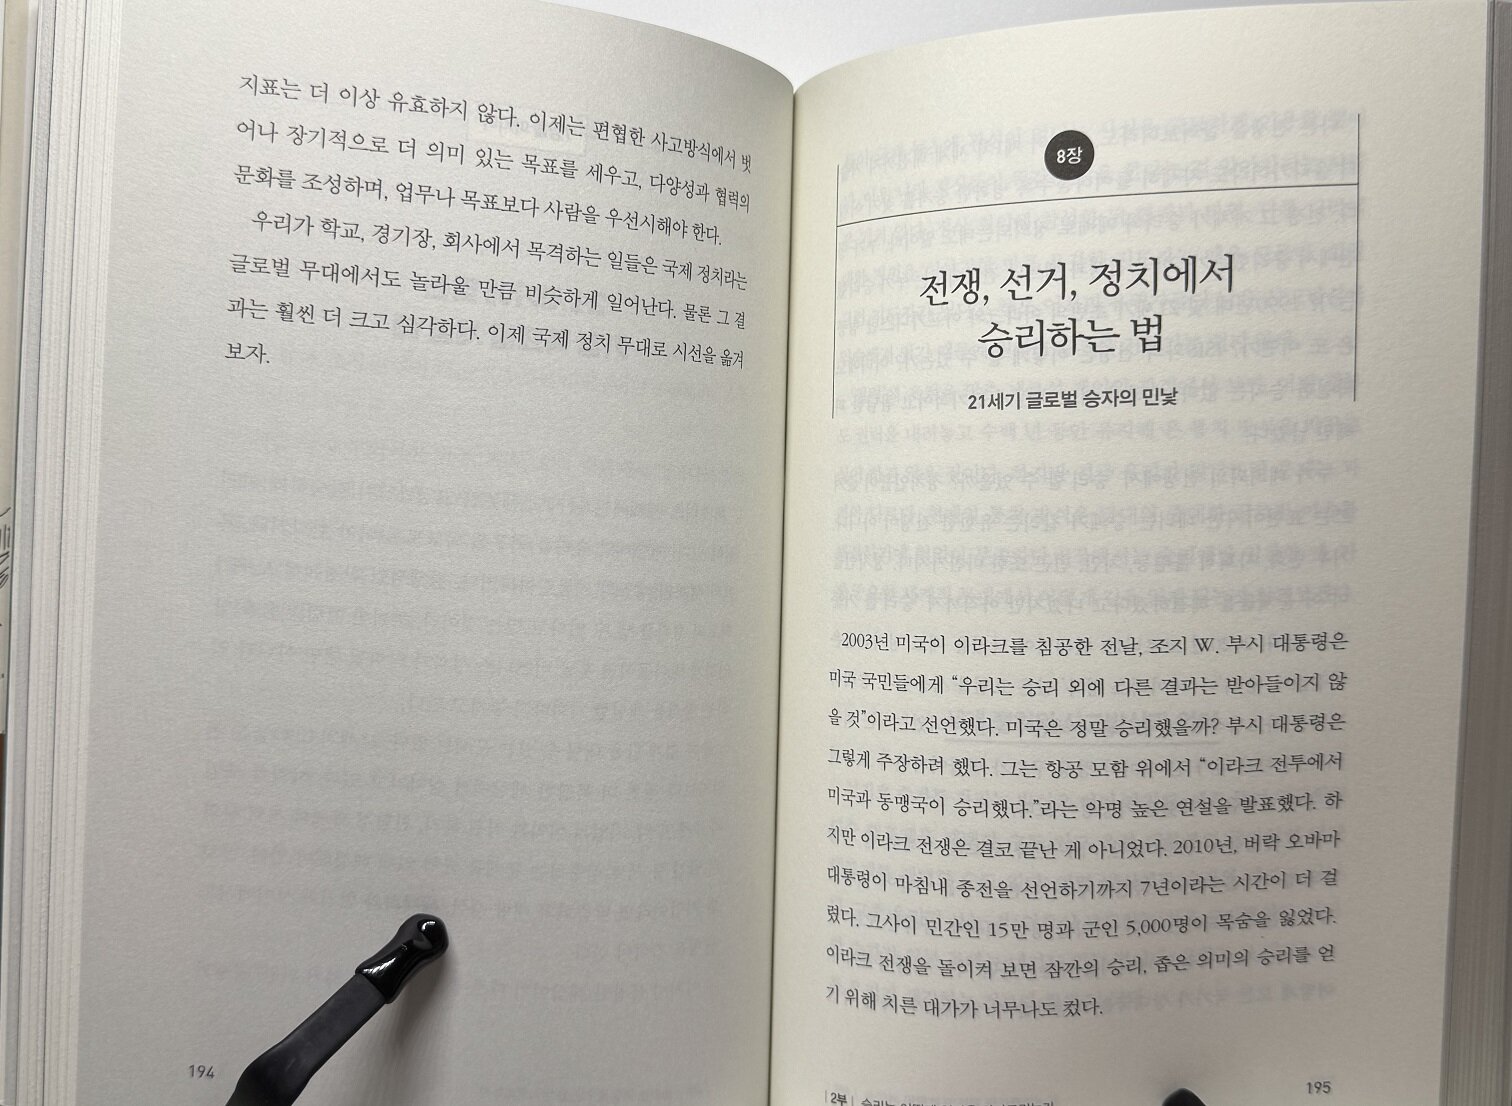 지표는 더 이상 유효하지 않다. 이제는 편협한 사고방식에서 벗
어나 장기적으로 더 의미 있는 목표를 세우고, 다양성과 협력의
문화를 조성하며, 업무나 목표보다 사람을 우선시해야 한다.
우리가 학교, 경기장, 회사에서 목격하는 일들은 국제 정치라는
글로벌 무대에서도 놀라울 만큼 비슷하게 일어난다. 물론 그 결
과는 훨씬 더 크고 심각하다. 이제 국제 정치 무대로 시선을 옮겨
보자.
194
8장
전쟁, 선거, 정치에서
승리하는 법
21세기 글로벌 승자의 민낯
2003년 미국이 이라크를 침공한 전날, 조지 W. 부시 대통령은
미국 국민들에게 “우리는 승리 외에 다른 결과는 받아들이지 않
을 것”이라고 선언했다. 미국은 정말 승리했을까? 부시 대통령은
그렇게 주장하려 했다. 그는 항공 모함 위에서 “이라크 전투에서
미국과 동맹국이 승리했다.”라는 악명 높은 연설을 발표했다. 하
지만 이라크 전쟁은 결코 끝난 게 아니었다. 2010년, 버락 오바마
대통령이 마침내 종전을 선언하기까지 7년이라는 시간이 더 걸
렸다. 그사이 민간인 15만 명과 군인 5,000명이 목숨을 잃었다.
이라크 전쟁을 돌이켜 보면 잠깐의 승리, 좁은 의미의 승리를 얻
기 위해 치른 대가가 너무나도 컸다.
2부
195